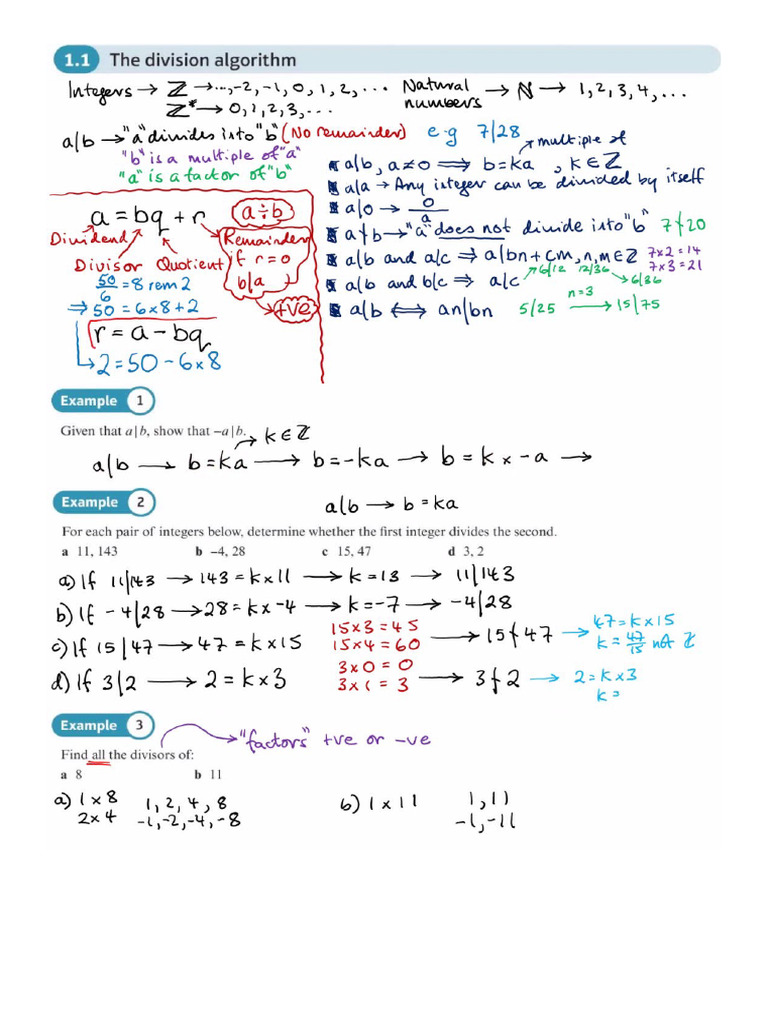 1.1 The division algorithm
Integers → ℤ → ..., -2, -1, 0, 1, 2, ... Natural numbers → ℕ → 1, 2, 3, 4, ...
ℤ* → 0, 1, 2, 3, ...
a|b → "a" divides into "b" (No remainder) e.g 7|28
"b" is a multiple of "a"
"a" is a factor of "b"
multiple of
a|b, a≠0 ⟹ b=ka, k∈ℤ
a|a → Any integer can be divided by itself
a|0 → 0/a
a∤b → "a" does not divide into "b" 7∤20
a|b and a|c ⟹ a|bn+cm, n,m∈ℤ 7×2=14
7×3=21
6|12 12|36 → 6|36
a|b and b|c ⟹ a|c
n=3
a|b ⟺ an|bn 5|25 → 15|75
a = bq + r a÷b
Dividend Remainder
Divisor Quotient if r=0
b|a
+ve
50/6 = 8 rem 2
⇒ 50 = 6×8+2
r = a - bq
2 = 50 - 6×8
Example 1
Given that a|b, show that –a|b. → k∈ℤ
a|b → b=ka → b=-ka → b=k×-a →
Example 2 a|b → b=ka
For each pair of integers below, determine whether the first integer divides the second.
a 11, 143 b –4, 28 c 15, 47 d 3, 2
a) If 11|143 → 143=k×11 → k=13 → 11|143
b) If -4|28 → 28=k×-4 → k=-7 → -4|28
c) If 15|47 → 47=k×15 15×3=45 15×4=60 → 15∤47 → 47=k×15 k=47/15 not ℤ
d) If 3|2 → 2=k×3 3×0=0 3×1=3 → 3∤2 → 2=k×3 k=
Example 3 "factors" +ve or -ve
Find all the divisors of:
a 8 b 11
a) 1×8 1, 2, 4, 8 b) 1×11 1, 11
2×4 -1, -2, -4, -8 -1, -11